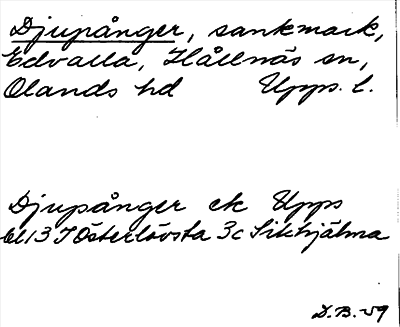 Djupånger, sankmark,
Edvalla, Hållnäs sn,
Olands hd Upps. l.
Djupånger ek Upps
bl 13 I Österlövsta 3c Sikhjälma
D.B.-59